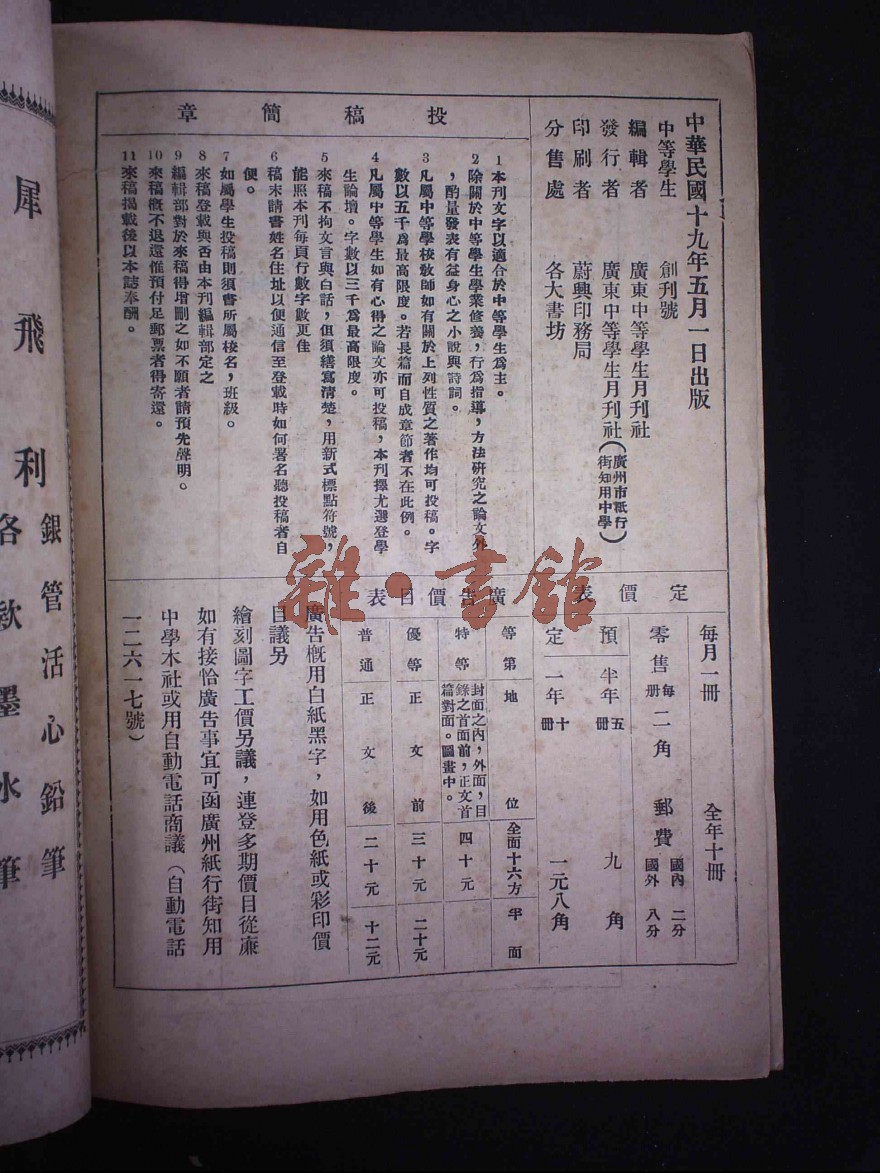 中華民國十九年五月一日出版
中等學生　創刊號
編輯者　廣東中等學生月刊社
發行者　廣東中等學生月刊社(廣州市紙行街知用中學)
印刷者　蔚興印務局
分售處　各大書坊
投稿簡章
1本刊文字以適合於中等學生爲主。
2除關於中等學生學業修養，行爲指導，方法研究之論文外
，酌量發表有益身心之小說與詩詞。
3凡屬中等學校敎師如有關於上列性質之著作均可投稿。字
數以五千爲最高限度。若長篇而自成章節者不在此例。
4凡屬中等學生如有心得之論文亦可投稿，本刊擇尤選登學
生論壇。字數以三千爲最高限度。
5來稿不拘文言與白話，但須繕寫清楚，用新式標點符號，
能照本刊每頁行數字數更佳
6稿末請書姓名住址以便通信至登載時如何署名聽投稿者自
便。
7如屬學生投稿則須書所屬校名，班級。
8來稿登載與否由本刊編輯部定之
9編輯部對於來稿得增刪之如不願者請預先聲明。
10來稿槪不退還惟預付足郵票者得寄還。
11來稿揭載後以本誌奉酬。
定價表
每月一冊　全年十冊
零售　每冊　二角　郵費　國內　二分　國外　八分
預　半年　五冊　九角
定　一年　十冊　一元八角
廣告價目表
等第　地位　全面十六方　半面
特等　封面之內，外面，目錄之首面前，正文首篇對面。圖畫中。　四十元
優等　正文前　三十元　二十元
普通　正文後　二十元　十二元
廣告槪用白紙黑字，如用色紙或彩印價
目議另
繪刻圖字工價另議，連登多期價目從廉
如有接恰廣告事宜可函廣州紙行街知用
中學木社或用自動電話商議（自動電話
一二六一七號）
雜·書館
犀飛利
銀管活心鉛筆
各欵墨水筆